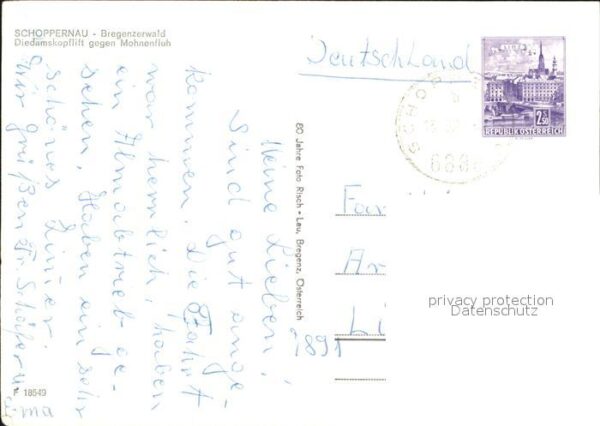 SCHOPPERNAU - Bregenzerwald
Diedamskopflift gegen Mohnenfluh
Deutschland
LINZ
2.50
REPUBLIK ÖSTERREICH
Meine Lieben!
Sind gut ange
kommen. Die Fahrt
war herrlich, haben
ein Almabtrieb ge-
sehen. Haben ein sehr
schönes Zimmer.
Wir grüßen Fr. Schäfer u.
80 Jahre Foto Risch - Lau, Bregenz, Österreich
Fa
Ar
Li
2891
privacy protection
Datenschutz
F 18549